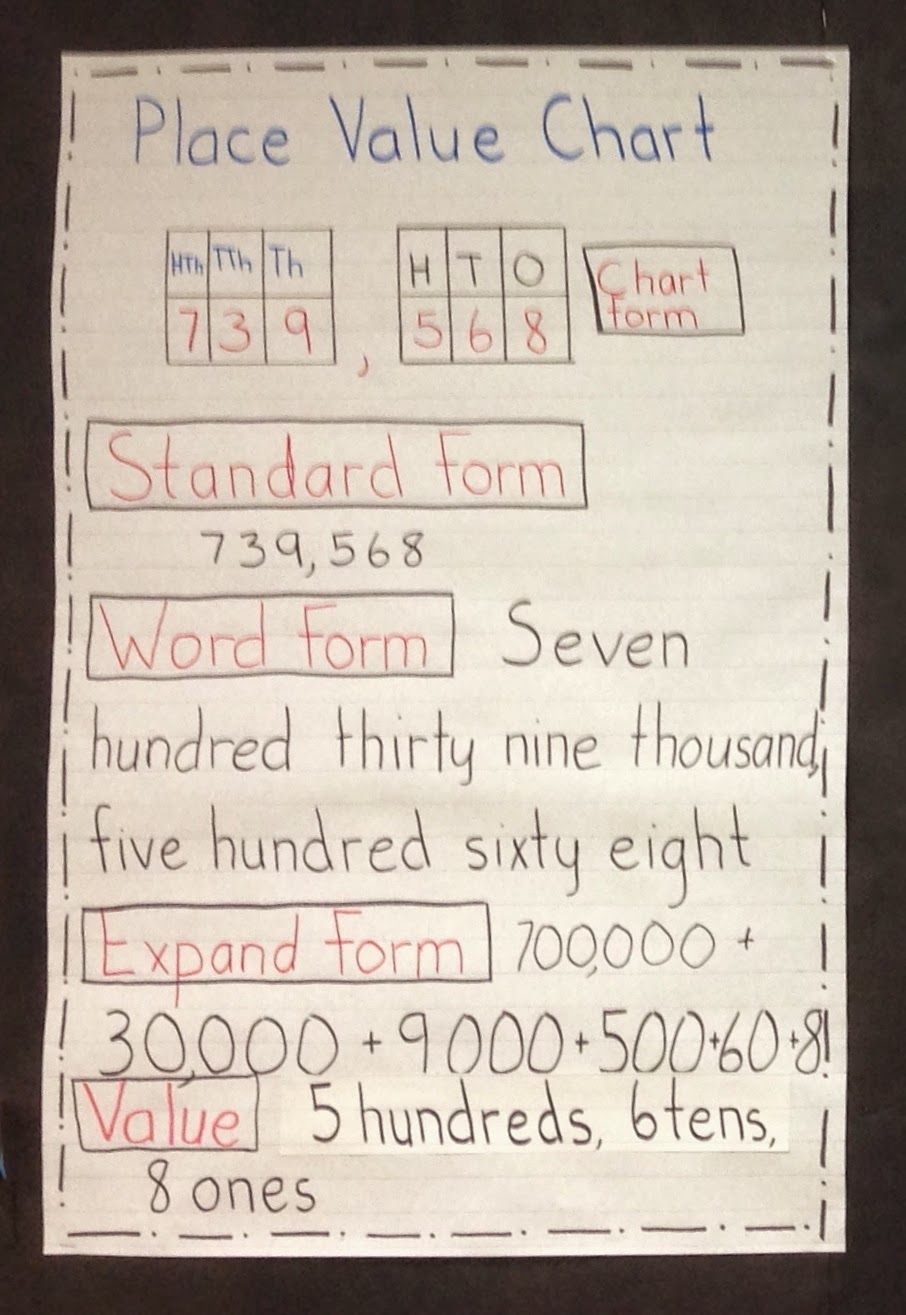 Place Value Chart
HTh TTh Th H T O Chart
7 3 9 , 5 6 8 form
Standard form
739,568
Word form Seven
hundred thirty nine thousand,
five hundred sixty eight
Expand form 700,000 +
30,000 + 9000 + 500+60+8
Value 5 hundreds, 6 tens,
8 ones